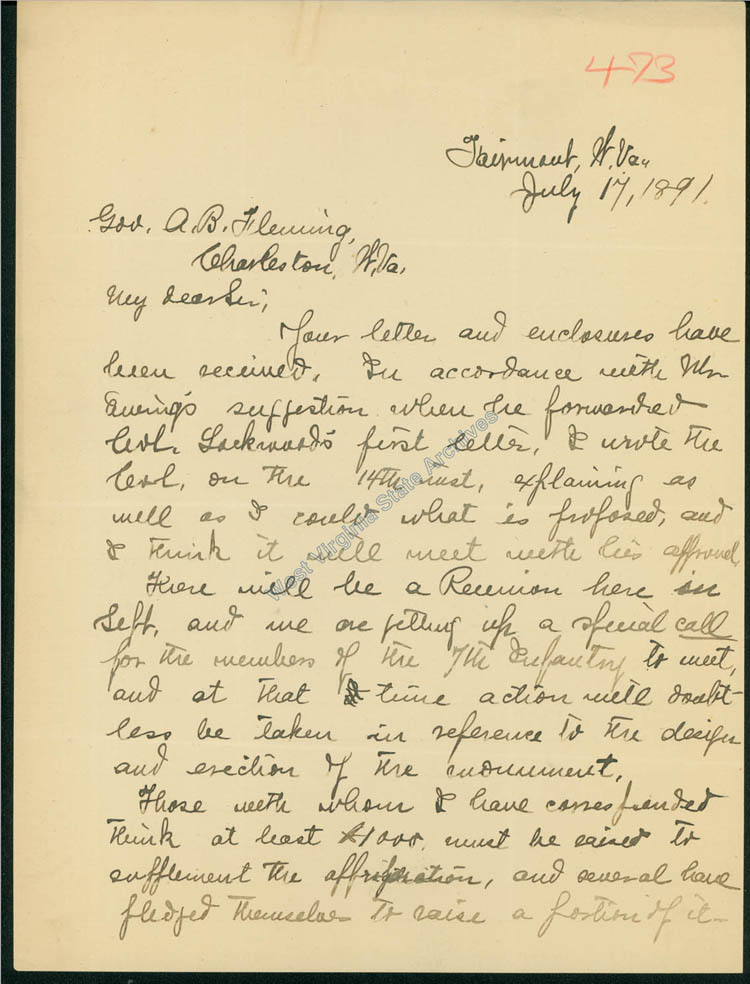 473
Fairmont, W.Va.,
July 17, 1891.
Gov. A. B. Fleming,
Charleston, W.Va.
My dear Sir;
Your letter and enclosures have
been received. In accordance with Mr
Ewing's suggestion when he forwarded
Col. Lockwood's first letter, I wrote the
Col. on the 14th inst, explaining as
well as I could what is proposed, and
I think it will meet with his approval.
There will be a Reunion here in
Sept. and we are getting up a special call
for the members of the 7th Infantry to meet,
and at that time action will doubt-
less be taken in reference to the design
and erection of the monument.
Those with whom I have corresponded
think at least $1000 must be raised to
supplement the appropriation, and several have
pledged themselves to raise a portion of it-
West Virginia State Archives